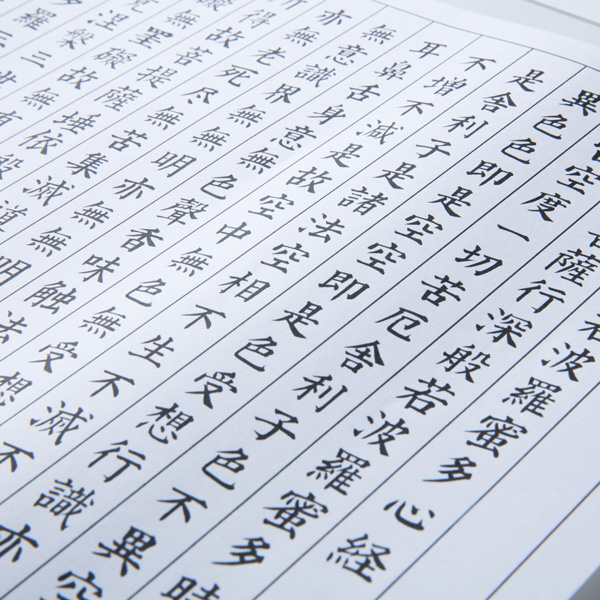 若波羅蜜多心経
薩行深般若波羅蜜多時
空度一切苦厄舎利子色不異空
異色色即是空空即是色受想行識亦
是舎利子是諸法空相不生不滅不
不増不減是故空中無色無受想
耳鼻舌身意無色聲香味触法
無意識界無無明亦無無明
亦無老死尽無苦集滅道
所得故菩提薩埵依般
無罣礙故無有
涅槃三世
多羅三